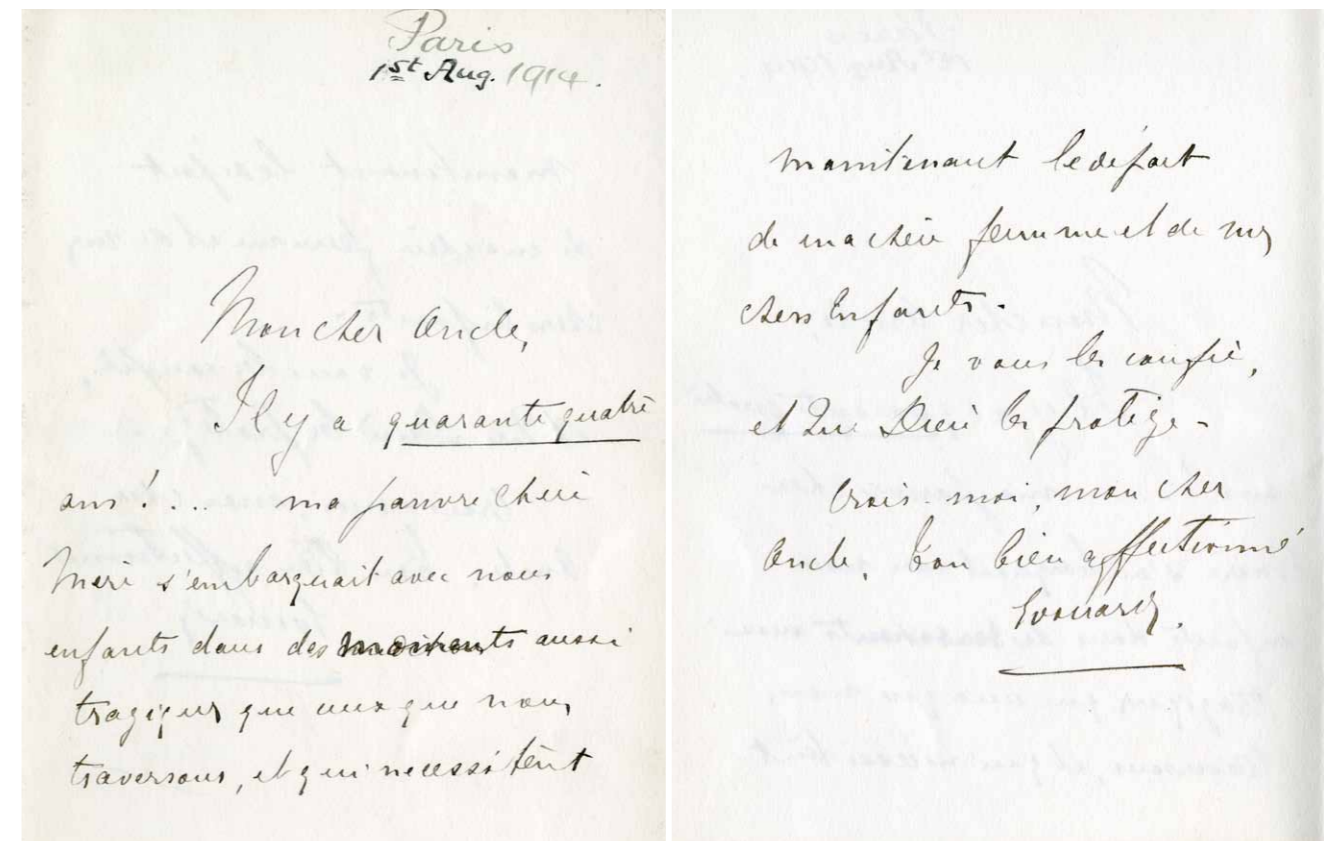 Paris
1st Aug. 1914.
Mon cher Oncle,
Il y a quarante quatre
ans!... ma pauvre chère
Mère s'embarquait avec nous
enfants dans des moments aussi
tragiques que ceux que nous
traversons, et qui necessitent
maintenant le départ
de ma chère femme et de mes
chers Enfants.
Je vous les confie,
et Que Dieu les protège -
Crois-moi, mon cher
Oncle, ton bien affectionné
Edouard.